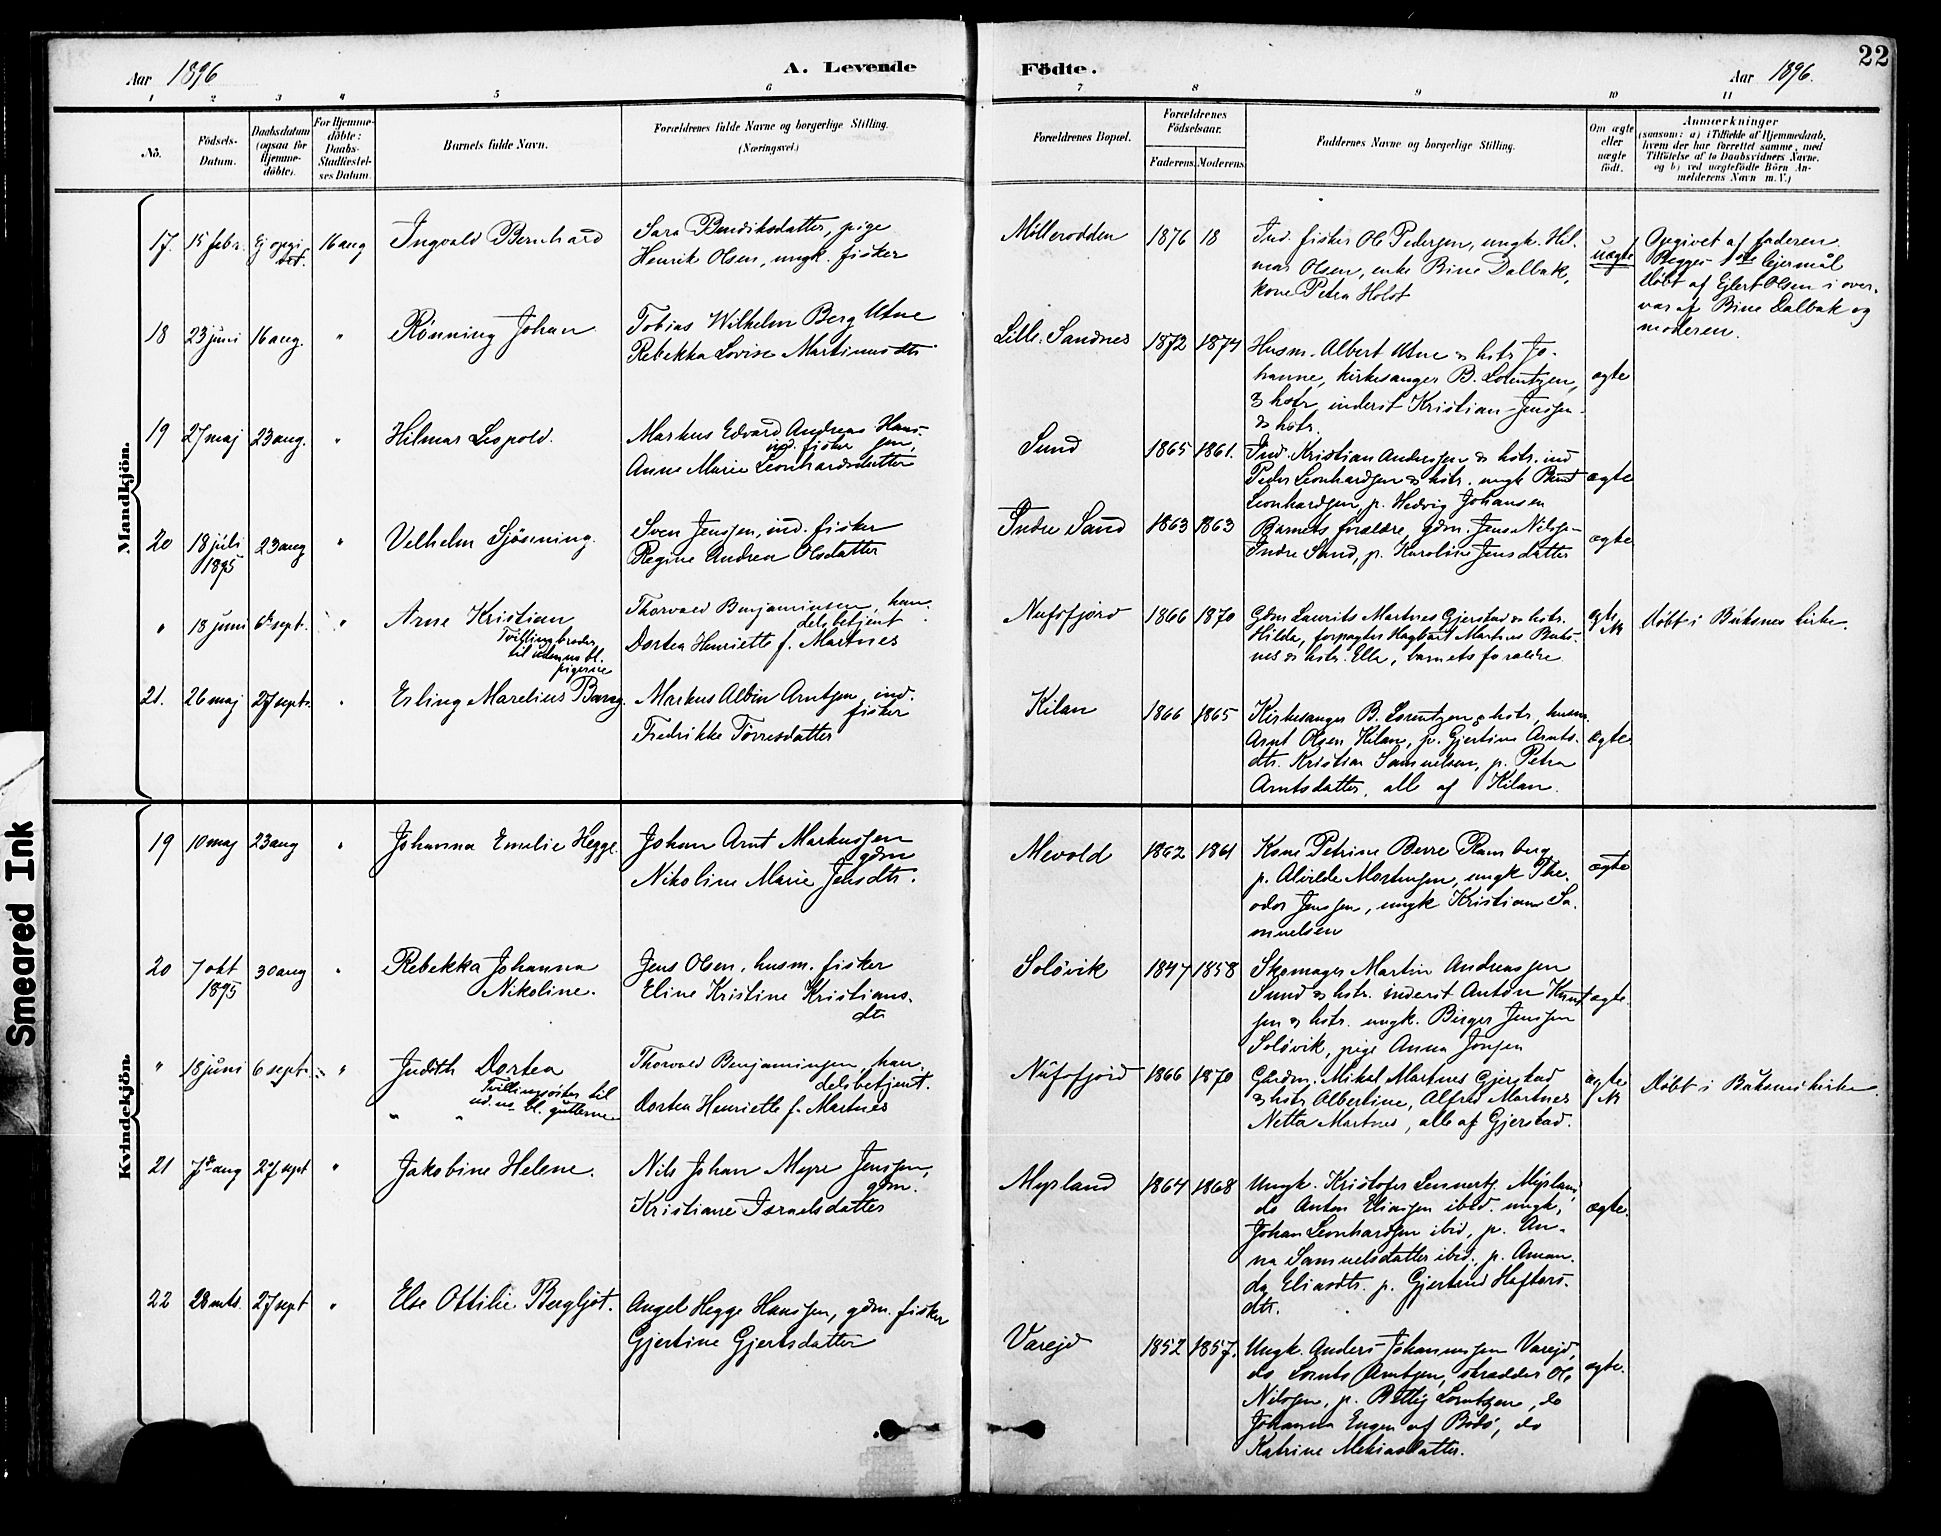 22
Aar 1896
A. Levende
Födte.
Aar 1896.
1 2 3 4 5 6 7 8 9 10 11
No.
Födsels-
Datum.
Daabsdatum
(ogsaa for
Hjemme-
döbte).
For Hjemme-
döbte:
Daabs-
Stadfæstel-
ses Datum.
Barnets fulde Navn.
Forældrenes fulde Navne og borgerlige Stilling.
(Næringsvei.)
Forældrenes Bopæl.
Forældrenes
Födselsaar.
Faderens. Moderens.
Faddernes Navne og borgerlige Stilling.
Om ægte
eller
uægte
födt.
Anmærkninger
(saasom: a) i Tilfælde af Hjemmedaab,
hvem der har forrettet samme, med
Tilföielse af to Daabsvidners Navne,
og b) ved uægtefödte Börn An-
melderens Navn m. V.)
Mandkjön.
17. 15 febr. Ej opgi-
vet. 16 aug Ingvald Bernhard
Sara Bendiksdatter, pige
Henrik Olsen, ungk. fisker
Möllerodden 1876 18
Ind. fisker Ole Pedersen, ungk. Hil-
mar Olsen, enke Bine Dalbak,
kone Petra Holst
uægte
Opgivet af faderen.
Begges 1ste lejermål
Döbt af Ejlert Olsen i over-
vær af Bine Dalbak og
moderen.
18 23 juni 16 aug. " Rönning Johan
Tobias Wilhelm Berg Utne
Rebekka Lovise Martinusdtr
Lille Sandnes 1872 1874
Husm. Albert Utne & hstr Jo-
hanne, kirkesanger B. Lorentzen,
& hstr, inderst Kristian Jenssen
& hstr.
ægte
19 27 maj 23 aug. " Hilmar Leopold.
Markus Edvard Andreas Hans-
sen,
ind. fisker
Anne Marie Leonhardsdatter
Sund 1865 1861.
Ind. Kristian Anderssen & hstr. ind
Peder Leonhardsen & hstr. ungk Bernt
Leonhardsen, p. Hedvig Johansen
ægte
20 18 juli
1895 23 aug " Velhelm Sjösening.
Sven Jenssen, ind. fisker
Regine Andrea Olsdatter
Indre Sand 1863 1863
Barnets forældre, gdm. Jens Nilssen
Indre Sand, p. Karoline Jensdatter
ægte
" 18 juni 6te sept. " Arne Kristian
Tvillingbroder
til udennr bl.
pigerne
Thorvald Benjaminsen, han-
delsbetjent
Dortea Henriette f. Martnes
Nufsfjord 1866 1870
Gdm Laurits Martnes Gjerstad & hstr.
Hilda, forpagter Hagbart Martnes Buks-
nes & hstr. Ella, barnets forældre
ægte
Döbt i Buksnes kirke.
21. 26 maj 27 sept. " Erling Marelius Bang.
Markus Albin Arntsen, ind.
fisker
Fredrikke Törresdatter
Kilan 1866 1865
Kirkesanger B. Lorentzen & hstr, husm.
Arnt Olsen Kilan, p. Gjertine Arnts-
dtr. Kristian Samuelsen, p. Petra
Arntsdatter, alle af Kilan.
ægte
Kvindekjön.
19 10 maj 23 aug " Johanna Emelie Hegge
Johan Arnt Markussen
gdm
Nikoline Marie Jensdtr.
Mevold 1862 1861
Kone Petrine Berre Ramberg
p. Alvilde Mortensen, ungk The-
odor Jenssen, ungk Kristian Sa-
muelsen
ægte
20 7 okt
1895 30 aug " Rebekka Johanna
Nikoline.
Jens Olsen, husm. fisker
Eline Kristine Kristians-
dtr
Solövik 1847 1858
Skomager Martin Andreassen
Sund & hstr. inderst Anton Knut-
sen & hstr. ungk. Birger Jenssen
Solövik, pige Anna Jonsen
ægte.
" 18 juni 6 sept. " Judith Dortea
Tvillingsöster til
ud. nr bl. gutterne
Thorvald Benjaminsen, han-
delsbetjent.
Dortea Henriette f. Martnes
Nufsfjord 1866 1870
Gårdm. Mikal Martnes Gjerstad
& hstr Albertine, Alfred Martnes
Netta Martnes, alle af Gjerstad.
ægte
Döbt i Buksnes kirke.
21 7de aug 27 sept " Jakobine Helene.
Nils Johan Myre Jenssen,
gdm.
Kristiane Israelsdatter
Myrland 1864 1868
Ungk. Kristofer Lennertz Myrland,
do Anton Eliassen ibid. ungk.
Johan Leonhardsen ibid, p. An-
na Samuelsdatter ibid. p. Aman-
da Eliasdtr. p. Gjertrud Hafters-
dtr.
ægte.
22 28 mts. 27 sept " Else Ottilie Bergljot.
Angel Hegge Hanssen, gdm. fisker
Gjertine Gjertsdatter
Varejd 1852 1857.
Ungk. Anders Johannessen Varejd,
do Lornts Arntsen, skrædder Ole
Nilssen, p. Betty Lorntzen, do
Johanna Engen af Bodö, do
Katrine Mekiasdatter.
ægte.
Smeared Ink